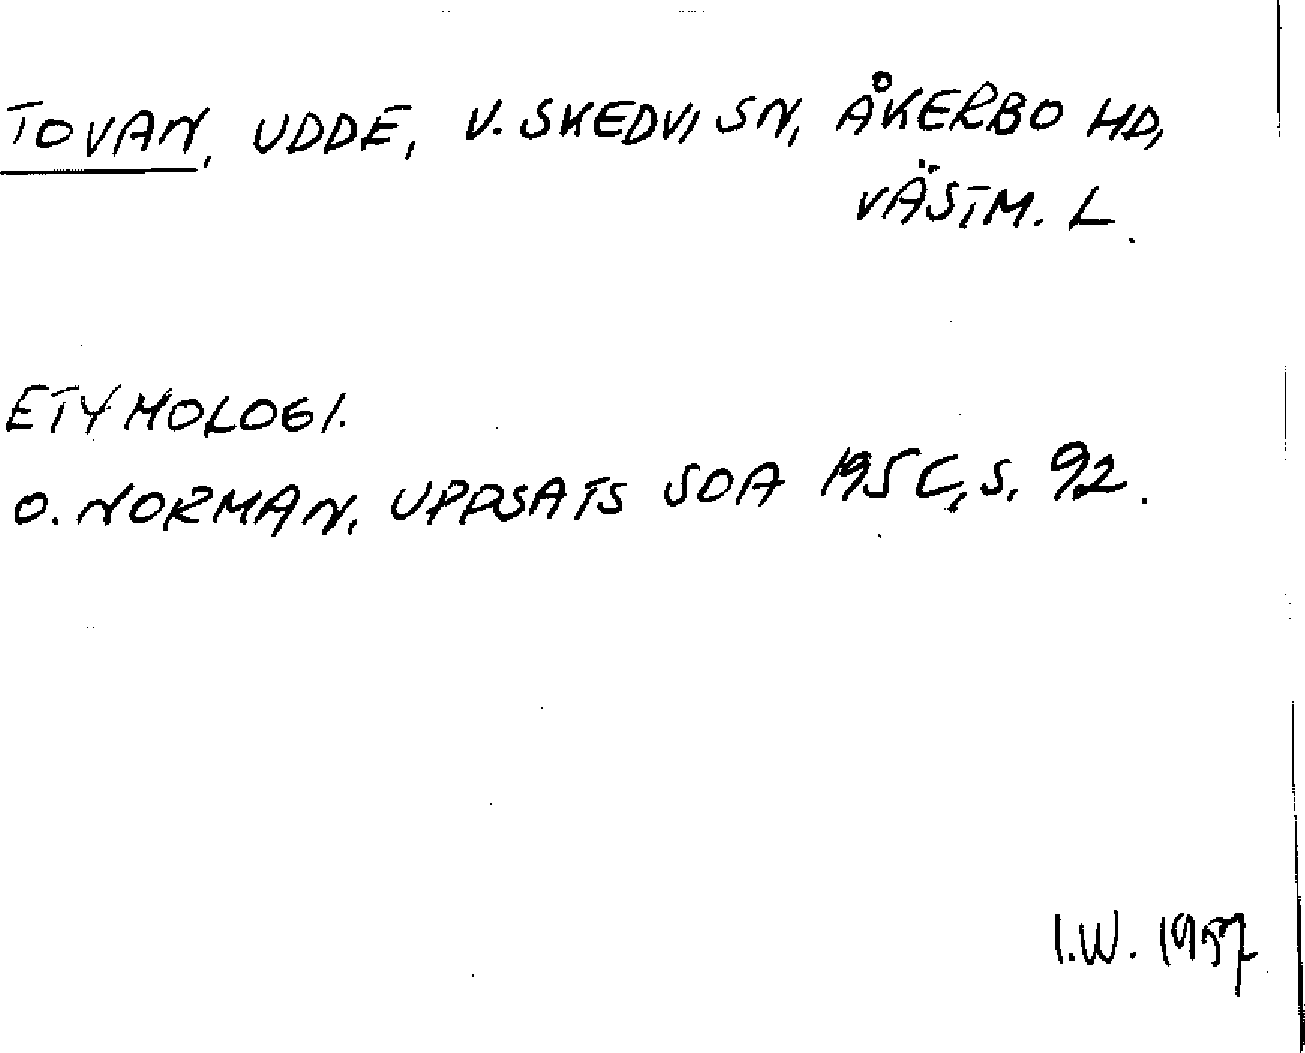 TOVAN, UDDE, V. SKEDVI SN, ÅKERBO HD,
VÄSTM. L.
ETYMOLOGI.
O. NORMAN, UPPSATS SOA 1956, S. 92.
I.W. 1957